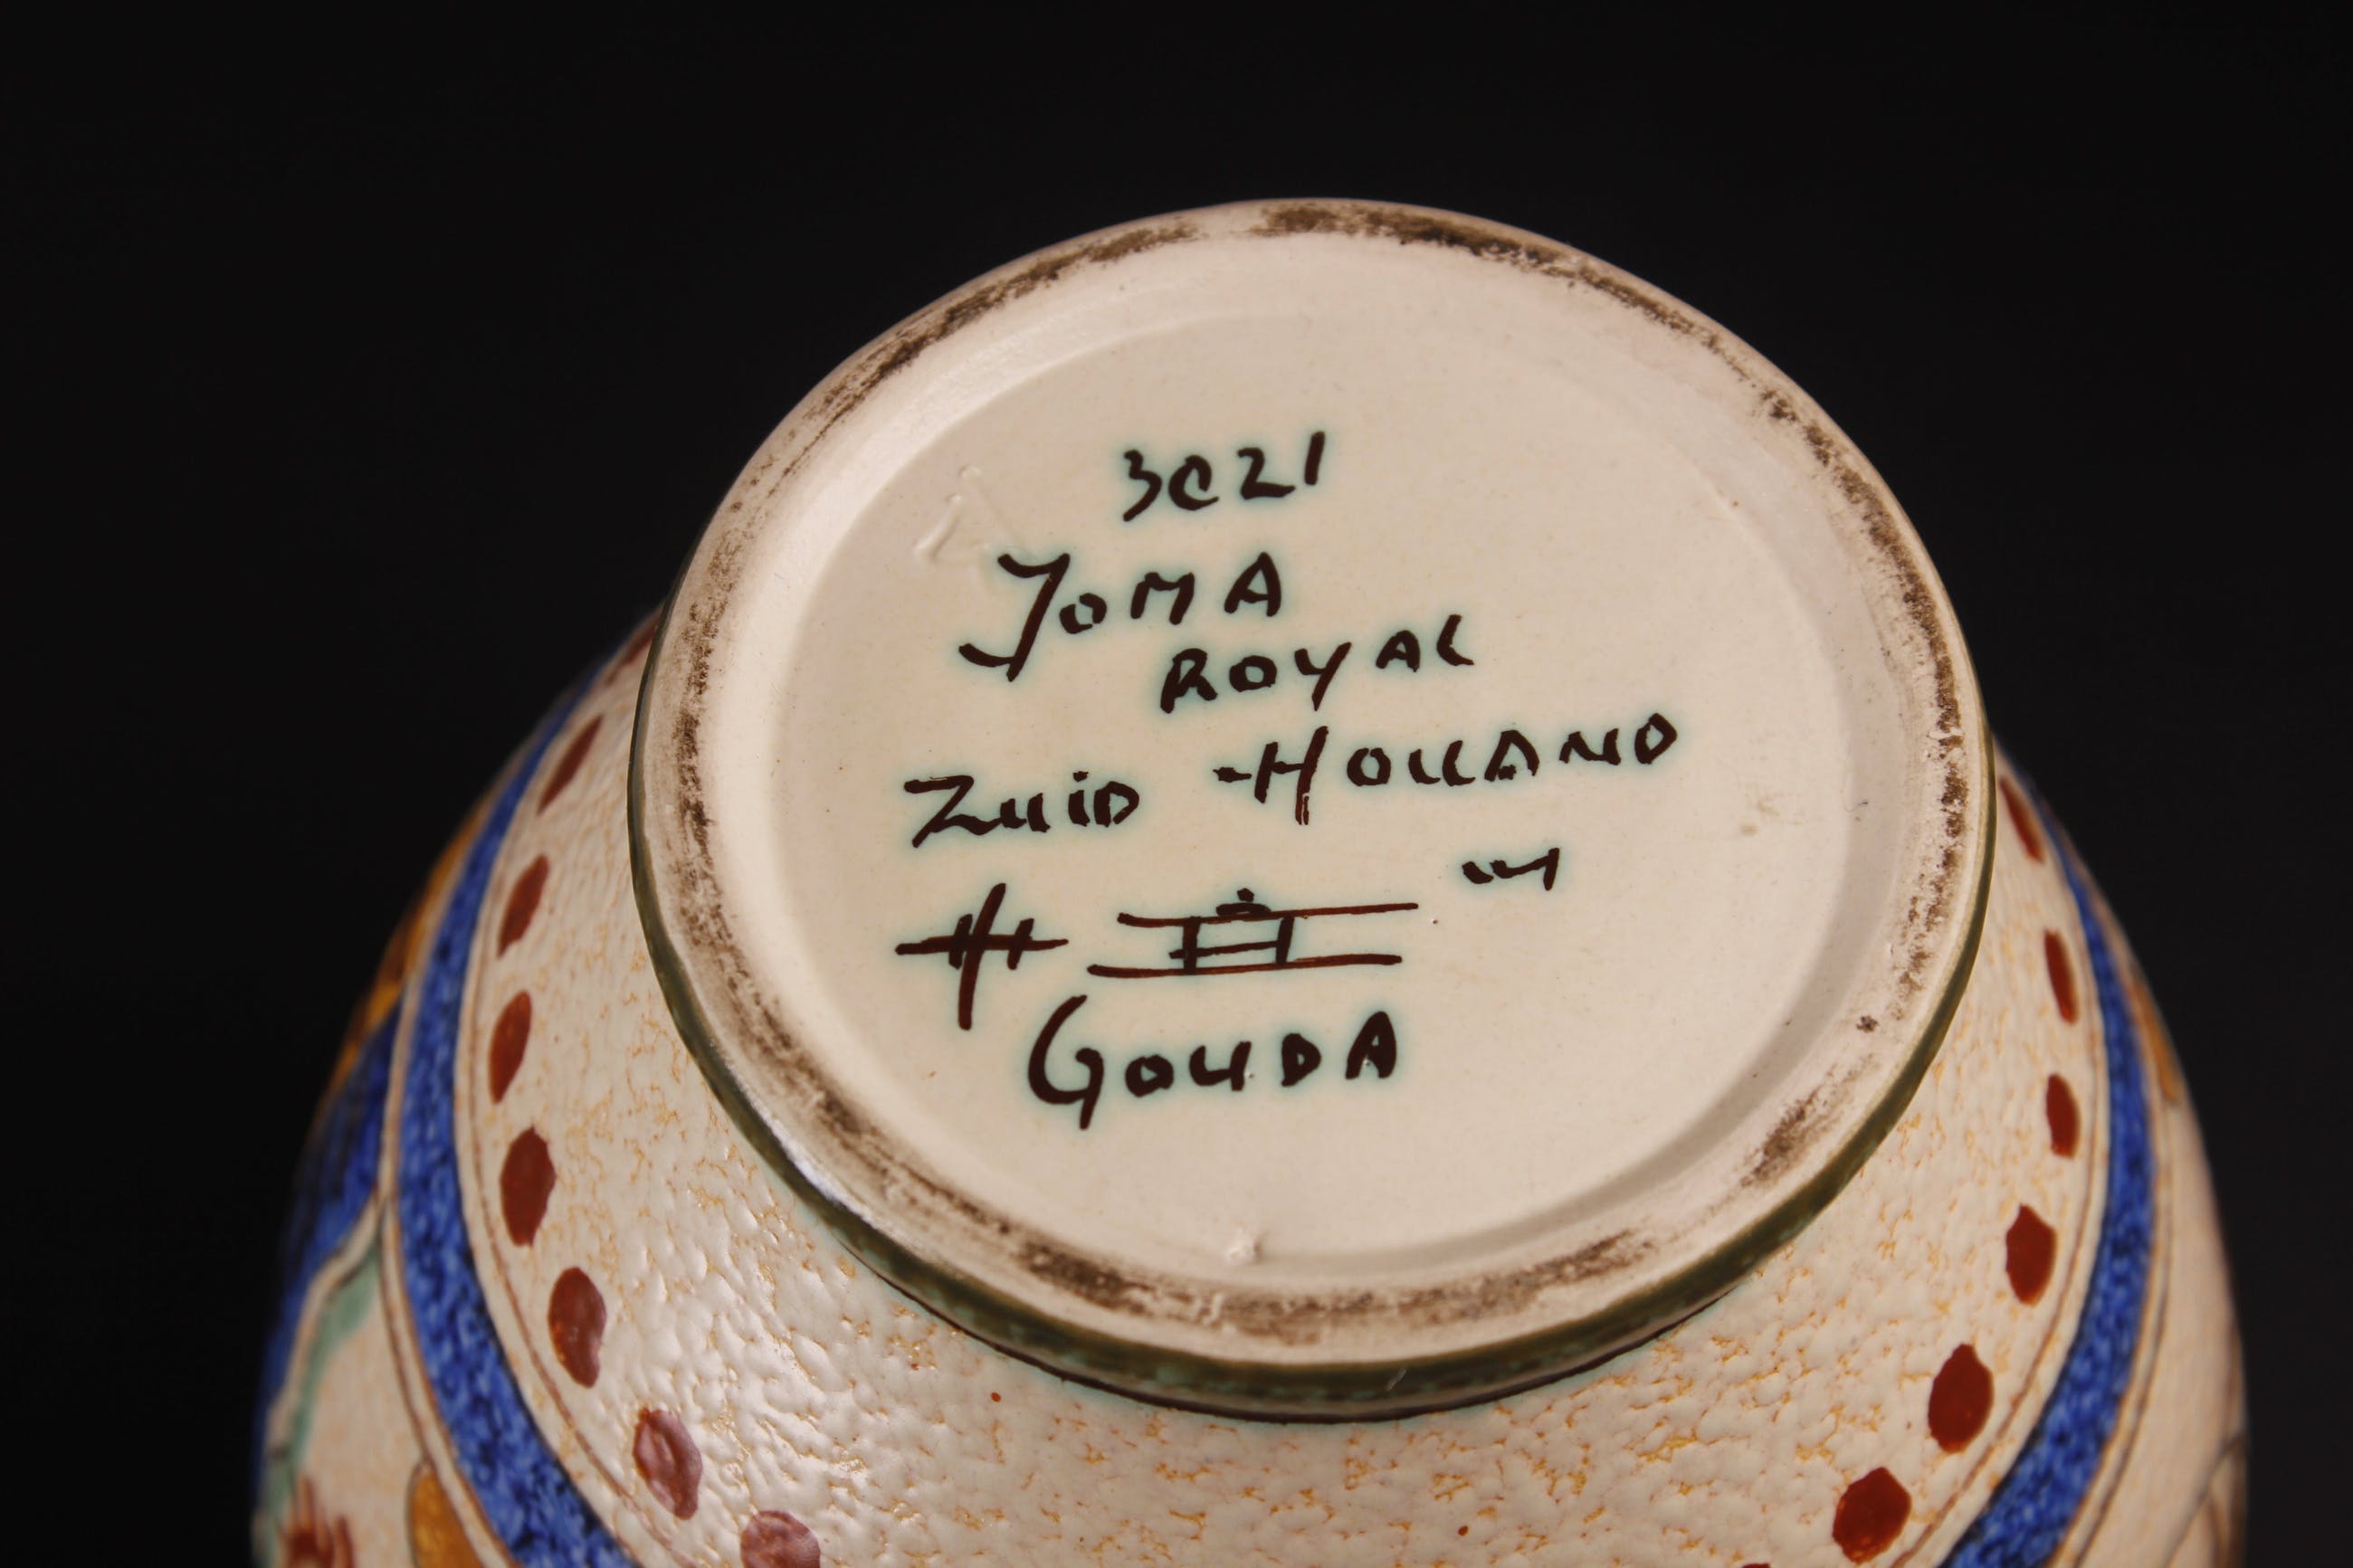 3C21
JOMA
ROYAL
ZUID-HOLLAND
GOUDA